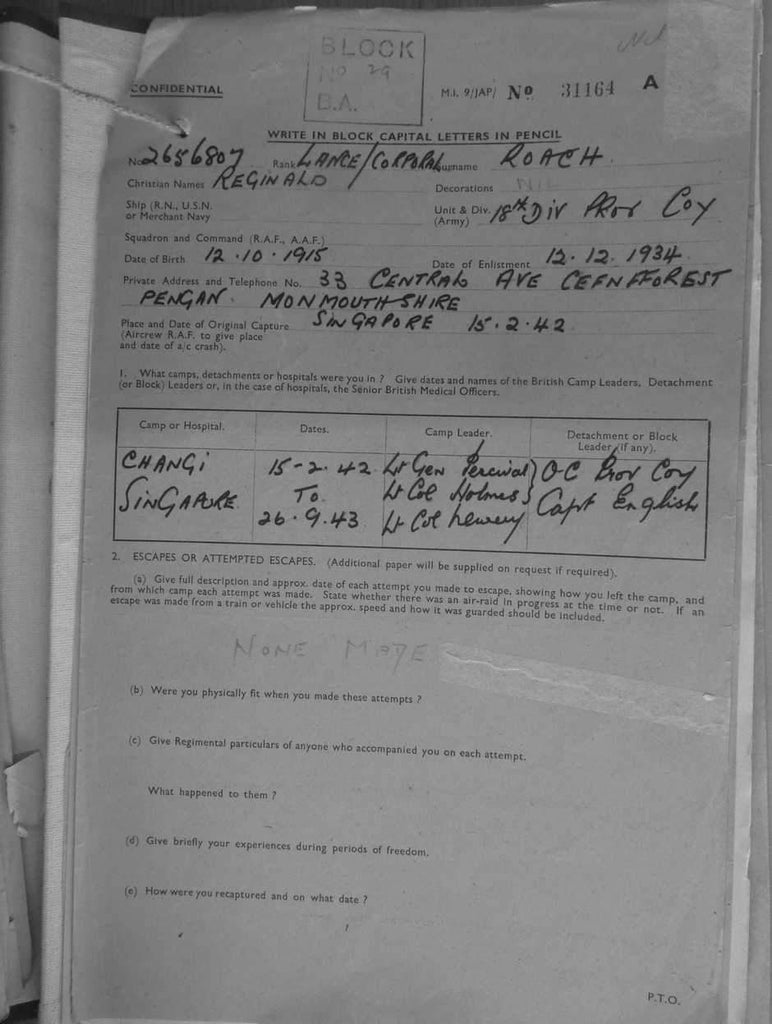 BLOCK
No 29
B.A.
Nil
CONFIDENTIAL
M.I. 9/JAP/ No 31164 A
WRITE IN BLOCK CAPITAL LETTERS IN PENCIL
No. 2656807 Rank LANCE/CORPORAL Surname ROACH.
Christian Names REGINALD Decorations NIL
Ship (R.N., U.S.N. or Merchant Navy
Unit & Div. (Army) 18th DIV PROV COY
Squadron and Command (R.A.F., A.A.F.)
Date of Birth 12.10.1915 Date of Enlistment 12.12.1934
Private Address and Telephone No. 33 CENTRAL AVE CEFNFFOREST
PENGAN. MONMOUTHSHIRE
Place and Date of Original Capture SINGAPORE 15.2.42
(Aircrew R.A.F. to give place
and date of a/c crash).
1. What camps, detachments or hospitals were you in ? Give dates and names of the British Camp Leaders, Detachment
(or Block) Leaders or, in the case of hospitals, the Senior British Medical Officers.
Camp or Hospital. Dates. Camp Leader. Detachment or Block Leader (if any).
CHANGI 15-2.42 Lt Gen Percival } O.C Prov Coy
SINGAPORE To Lt Col Holmes Capt English
26.9.43 Lt Col
2. ESCAPES OR ATTEMPTED ESCAPES. (Additional paper will be supplied on request if required).
(a) Give full description and approx. date of each attempt you made to escape, showing how you left the camp, and
from which camp each attempt was made. State whether there was an air-raid in progress at the time or not. If an
escape was made from a train or vehicle the approx. speed and how it was guarded should be included.
NONE MADE
(b) Were you physically fit when you made these attempts ?
(c) Give Regimental particulars of anyone who accompanied you on each attempt.
What happened to them ?
(d) Give briefly your experiences during periods of freedom.
(e) How were you recaptured and on what date ?
P.T.O.